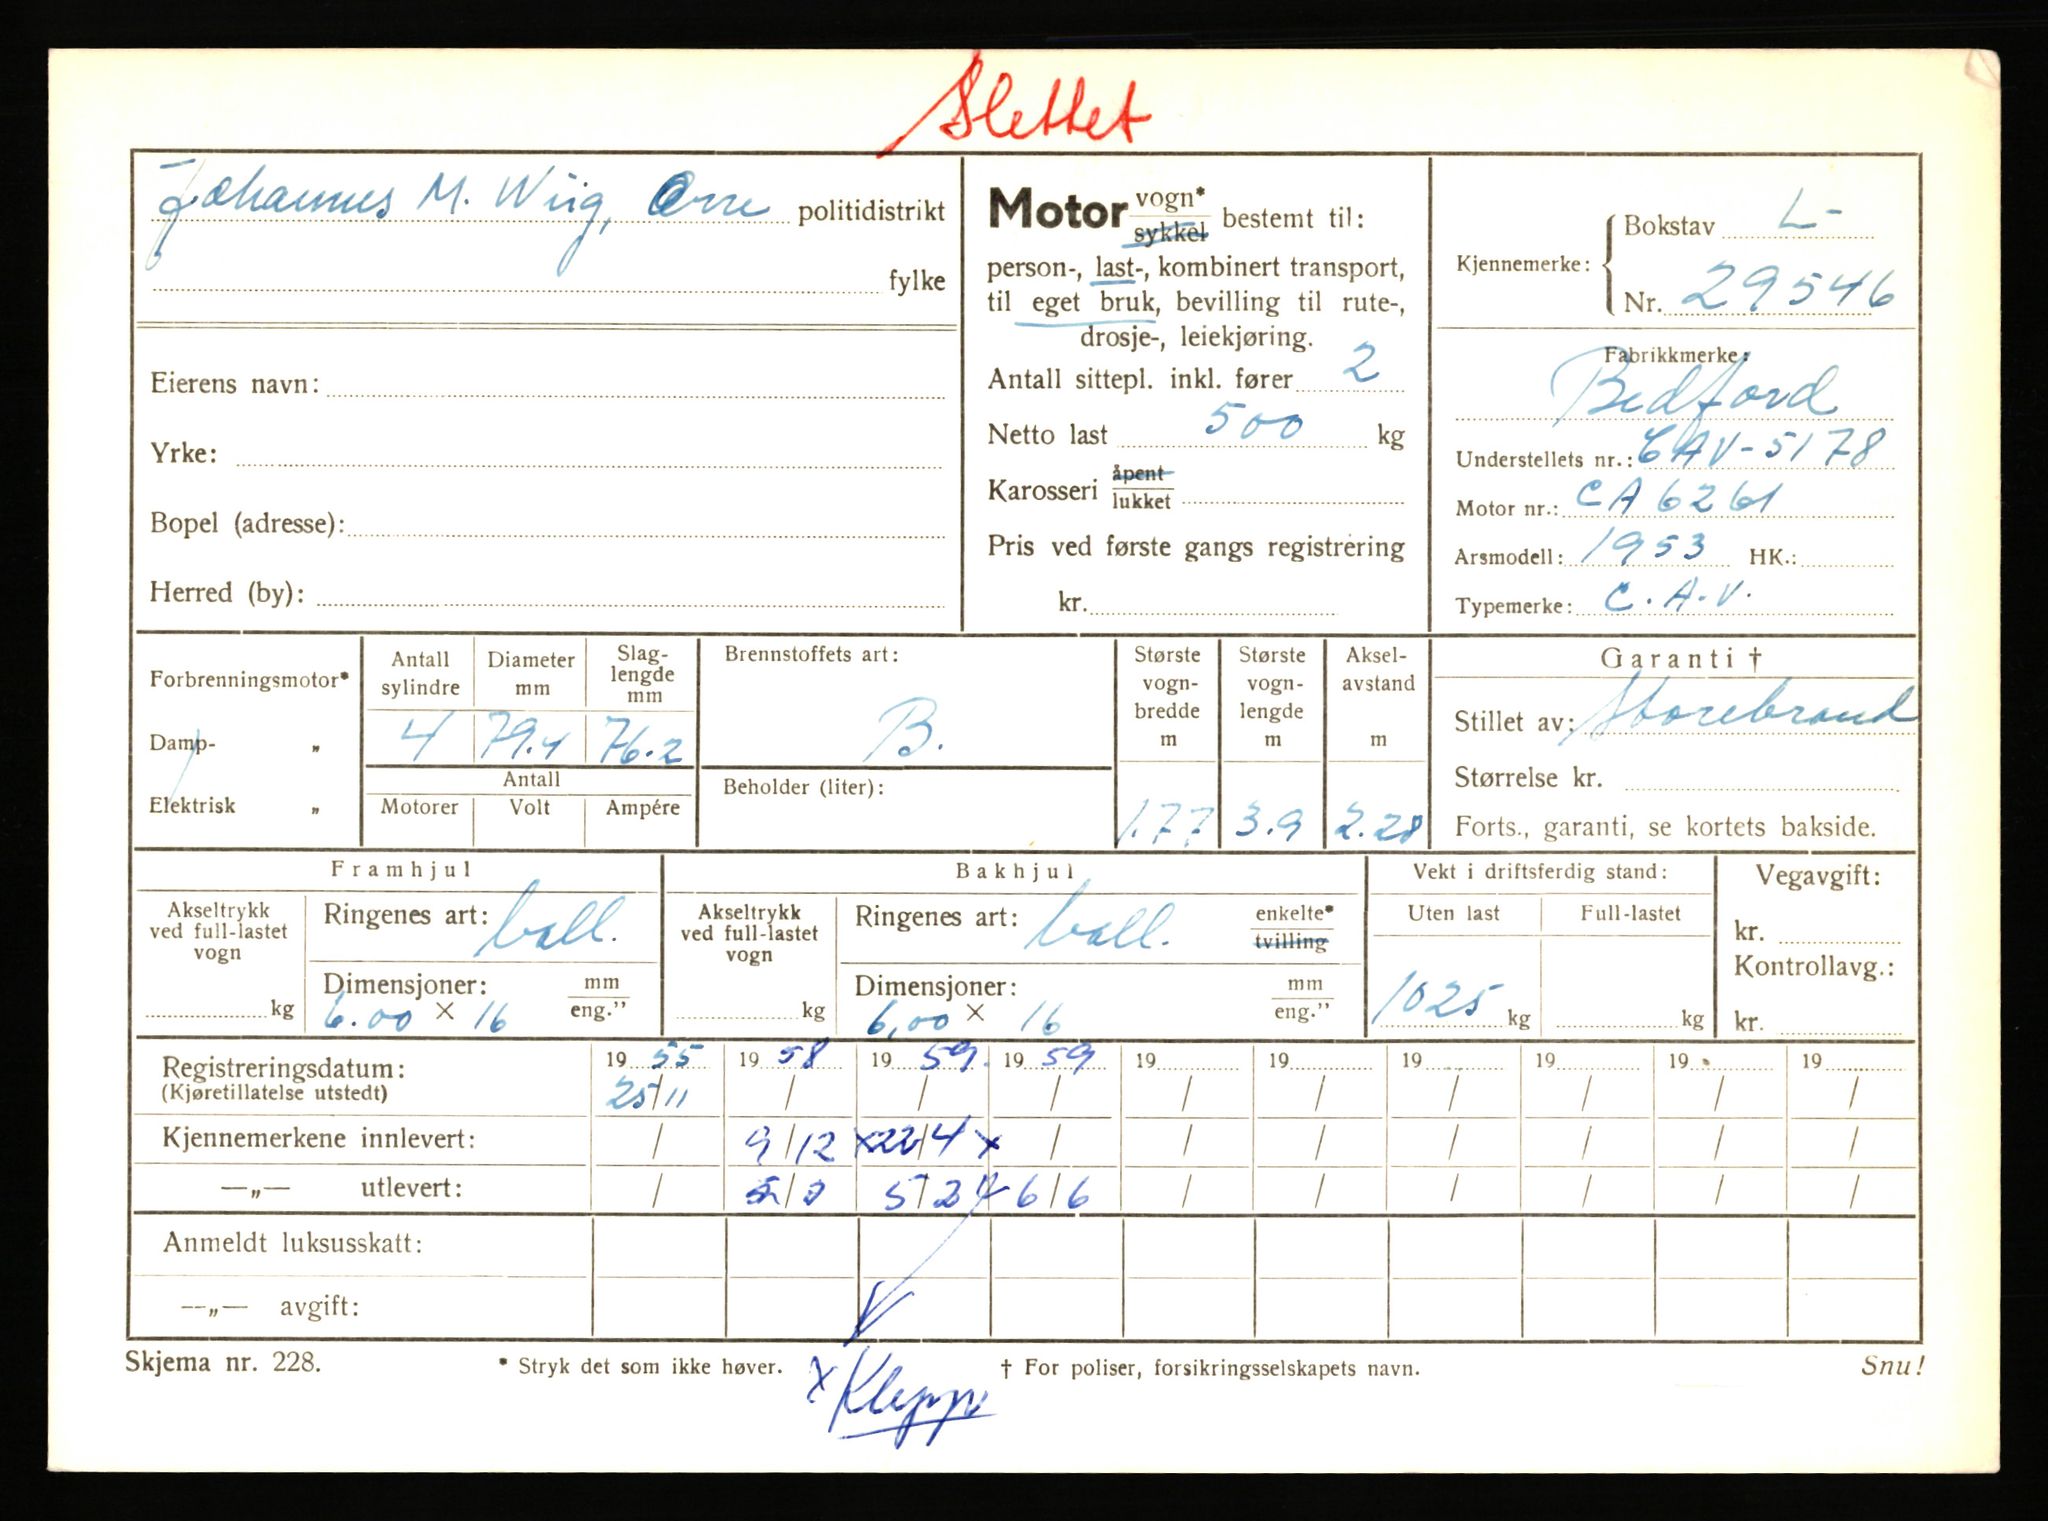 Slettet
Johannes M. Wiig, Orre politidistrikt
fylke
Eierens navn:
Yrke:
Bopel (adresse):
Herred (by):
Motor vogn* sykkel bestemt til:
person-, last-, kombinert transport,
til eget bruk, bevilling til rute-,
drosje-, leiekjøring.
Antall sittepl. inkl. fører 2
Netto last 500 kg
Karosseri åpent lukket
Pris ved første gangs registrering
kr.
Kjennemerke: Bokstav L-
Nr. 29546
Fabrikkmerke:
Bedford
Understellets nr.: CAV-5178
Motor nr.: CA 6261
Arsmodell: 1953 HK.:
Typemerke: C.A.V.
Forbrenningsmotor*
Damp- „
Elektrisk „
Antall sylindre
Diameter mm
Slag-lengde mm
4 79.4 76.2
Antall
Motorer Volt Ampére
Brennstoffets art:
B.
Beholder (liter):
Største vogn-bredde m
1.77
Største vogn-lengde m
3.9
Aksel-avstand m
2.28
Garanti †
Stillet av: Storebrand
Størrelse kr.
Forts., garanti, se kortets bakside.
Framhjul
Akseltrykk ved full-lastet vogn
kg
Ringenes art: ball.
Dimensjoner: mm eng.”
6.00 × 16
Bakhjul
Akseltrykk ved full-lastet vogn
kg
Ringenes art: ball. enkelte* tvilling
Dimensjoner: mm eng.”
6,00 × 16
Vekt i driftsferdig stand:
Uten last Full-lastet
1025 kg kg
Vegavgift:
kr.
Kontrollavg.:
kr.
Registreringsdatum: 19 55 19 58 19 59. 19 59 19 19 19 19 19 19
(Kjøretillatelse utstedt) 25/11 / / / / / / / / /
Kjennemerkene innlevert: / 9/12 x22/4 x / / / / / / /
—„— utlevert: / 5/2 6/6 / / / / / /
Anmeldt luksusskatt:
—„— avgift:
Skjema nr. 228. * Stryk det som ikke høver. † For poliser, forsikringsselskapets navn. Snu!
x Klepp